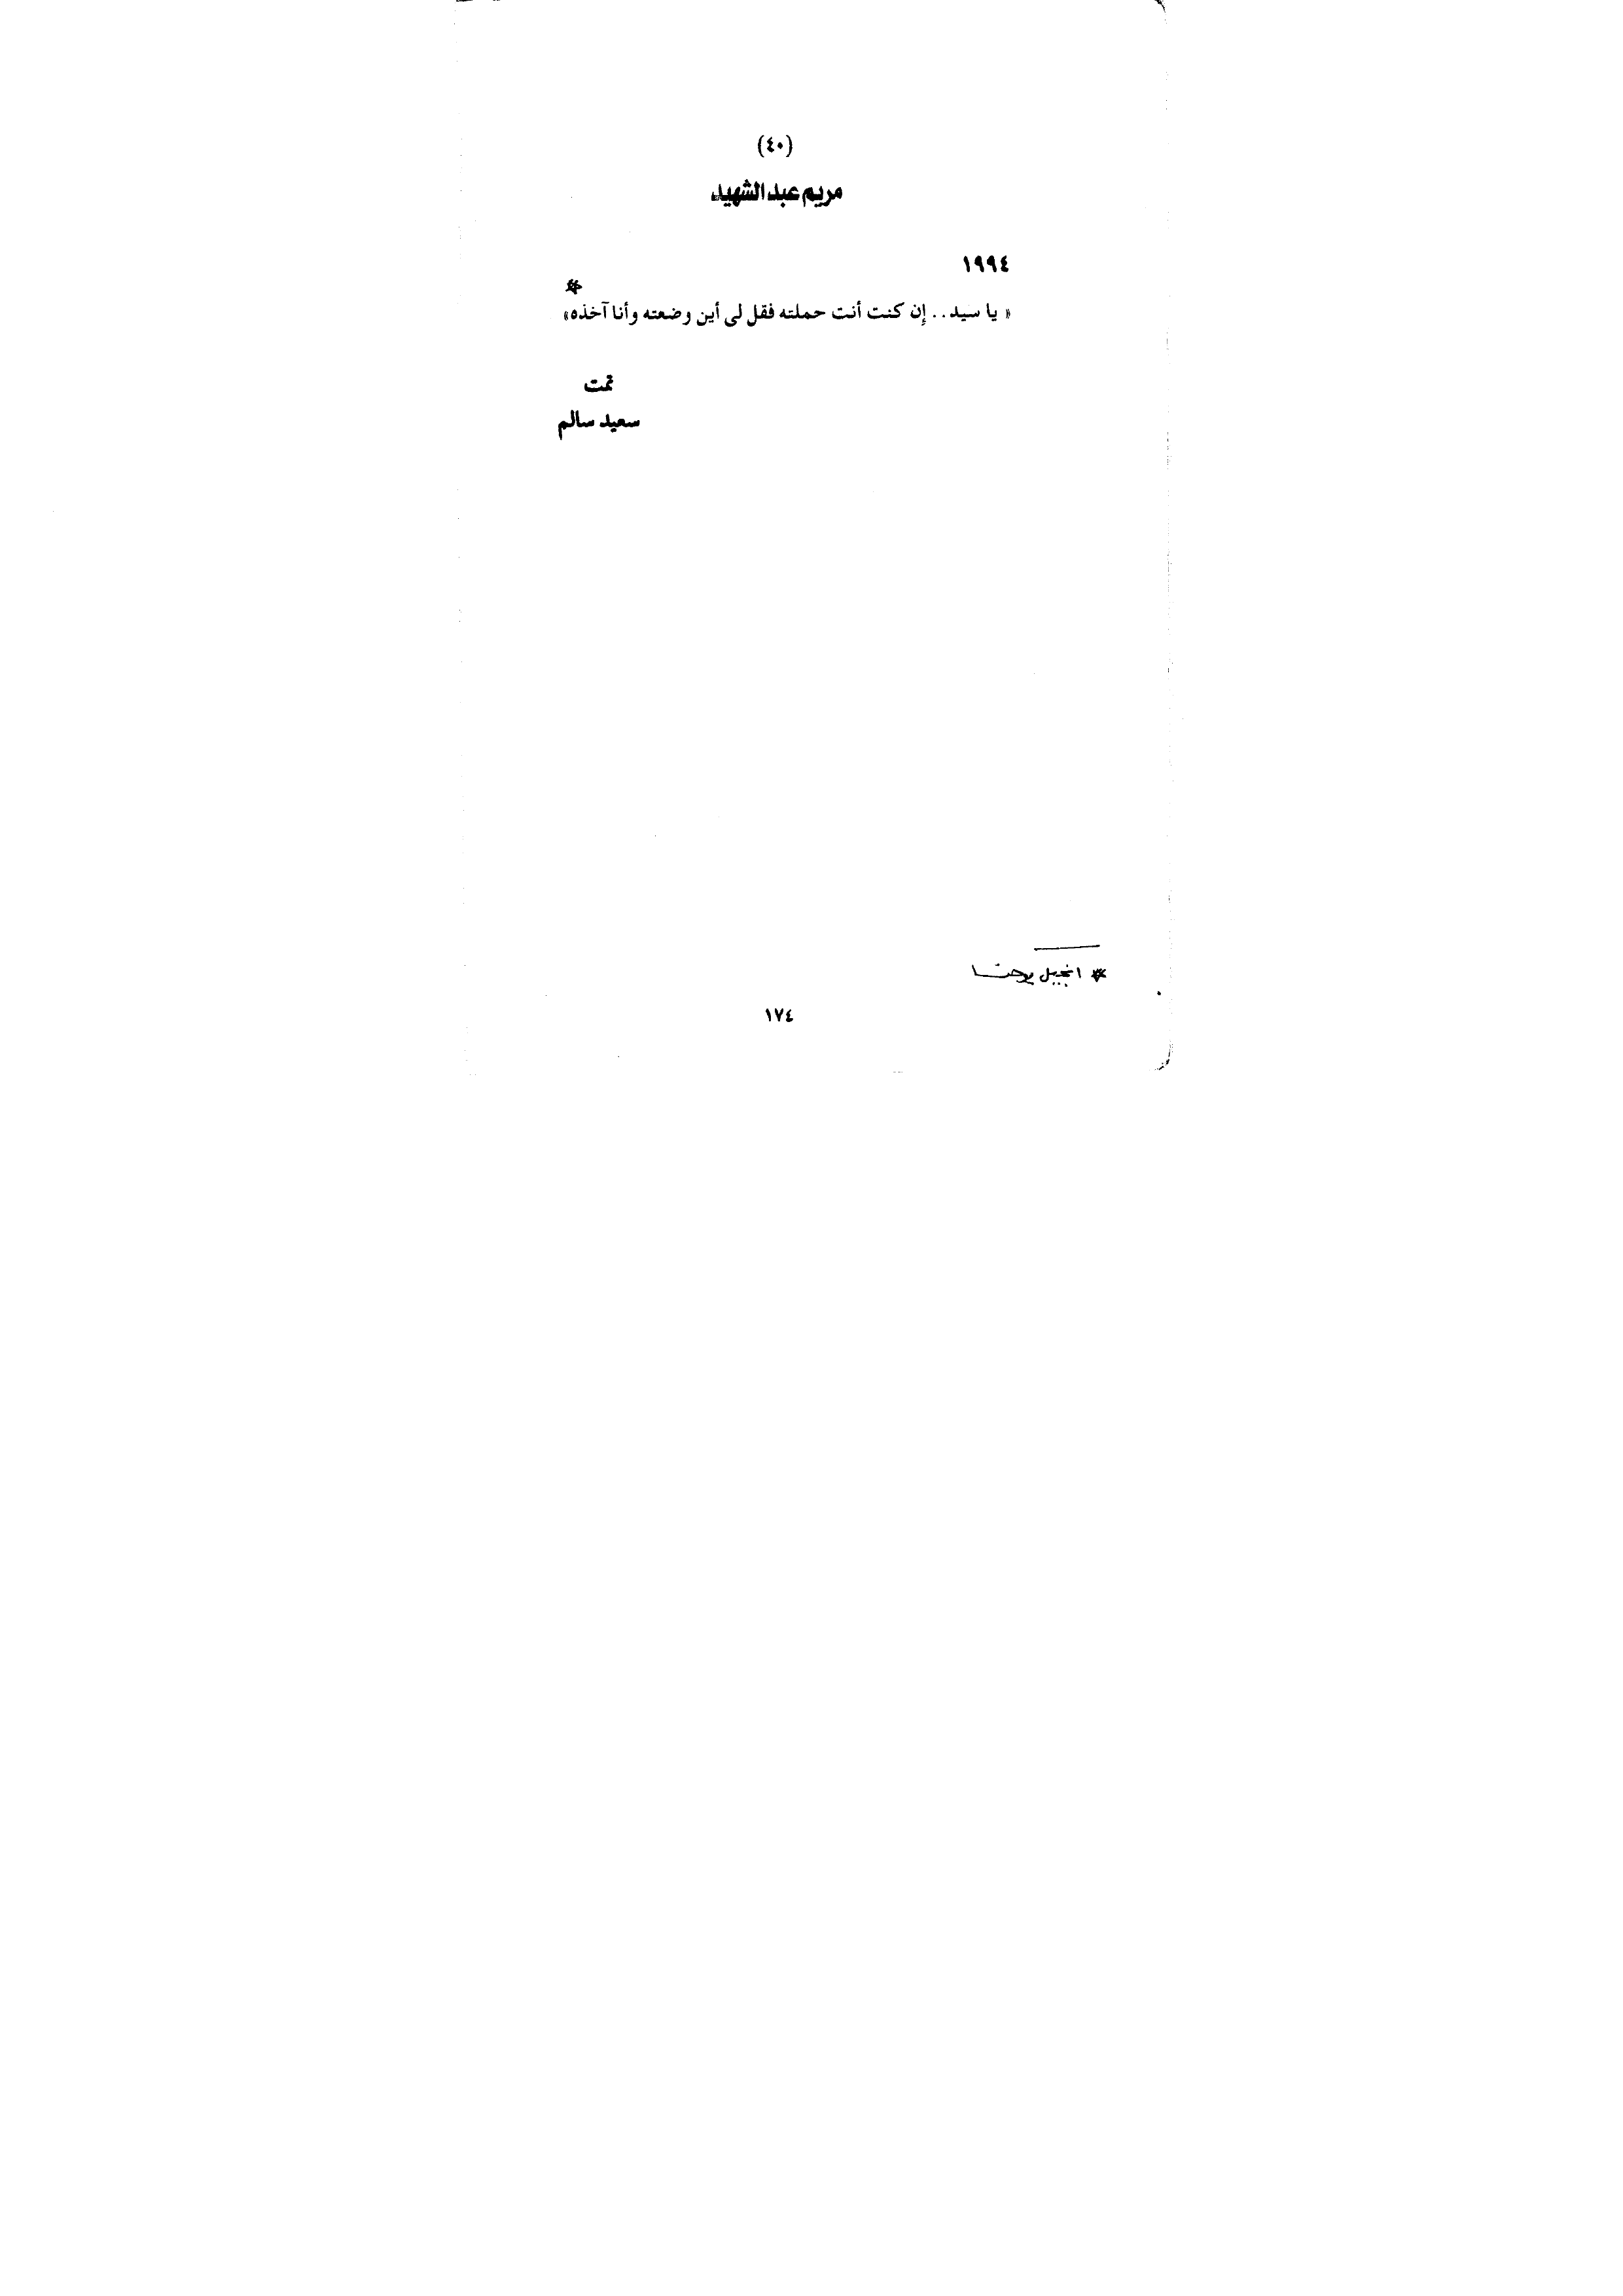 (٤٠)
مريم عبد الشهيد
١٩٩٤
« يا سيد.. إن كنت أنت حملته فقل لى أين وضعته وأنا آخذه» *
تمت
سعيد سالم
* انجيل يوحنا
١٧٤